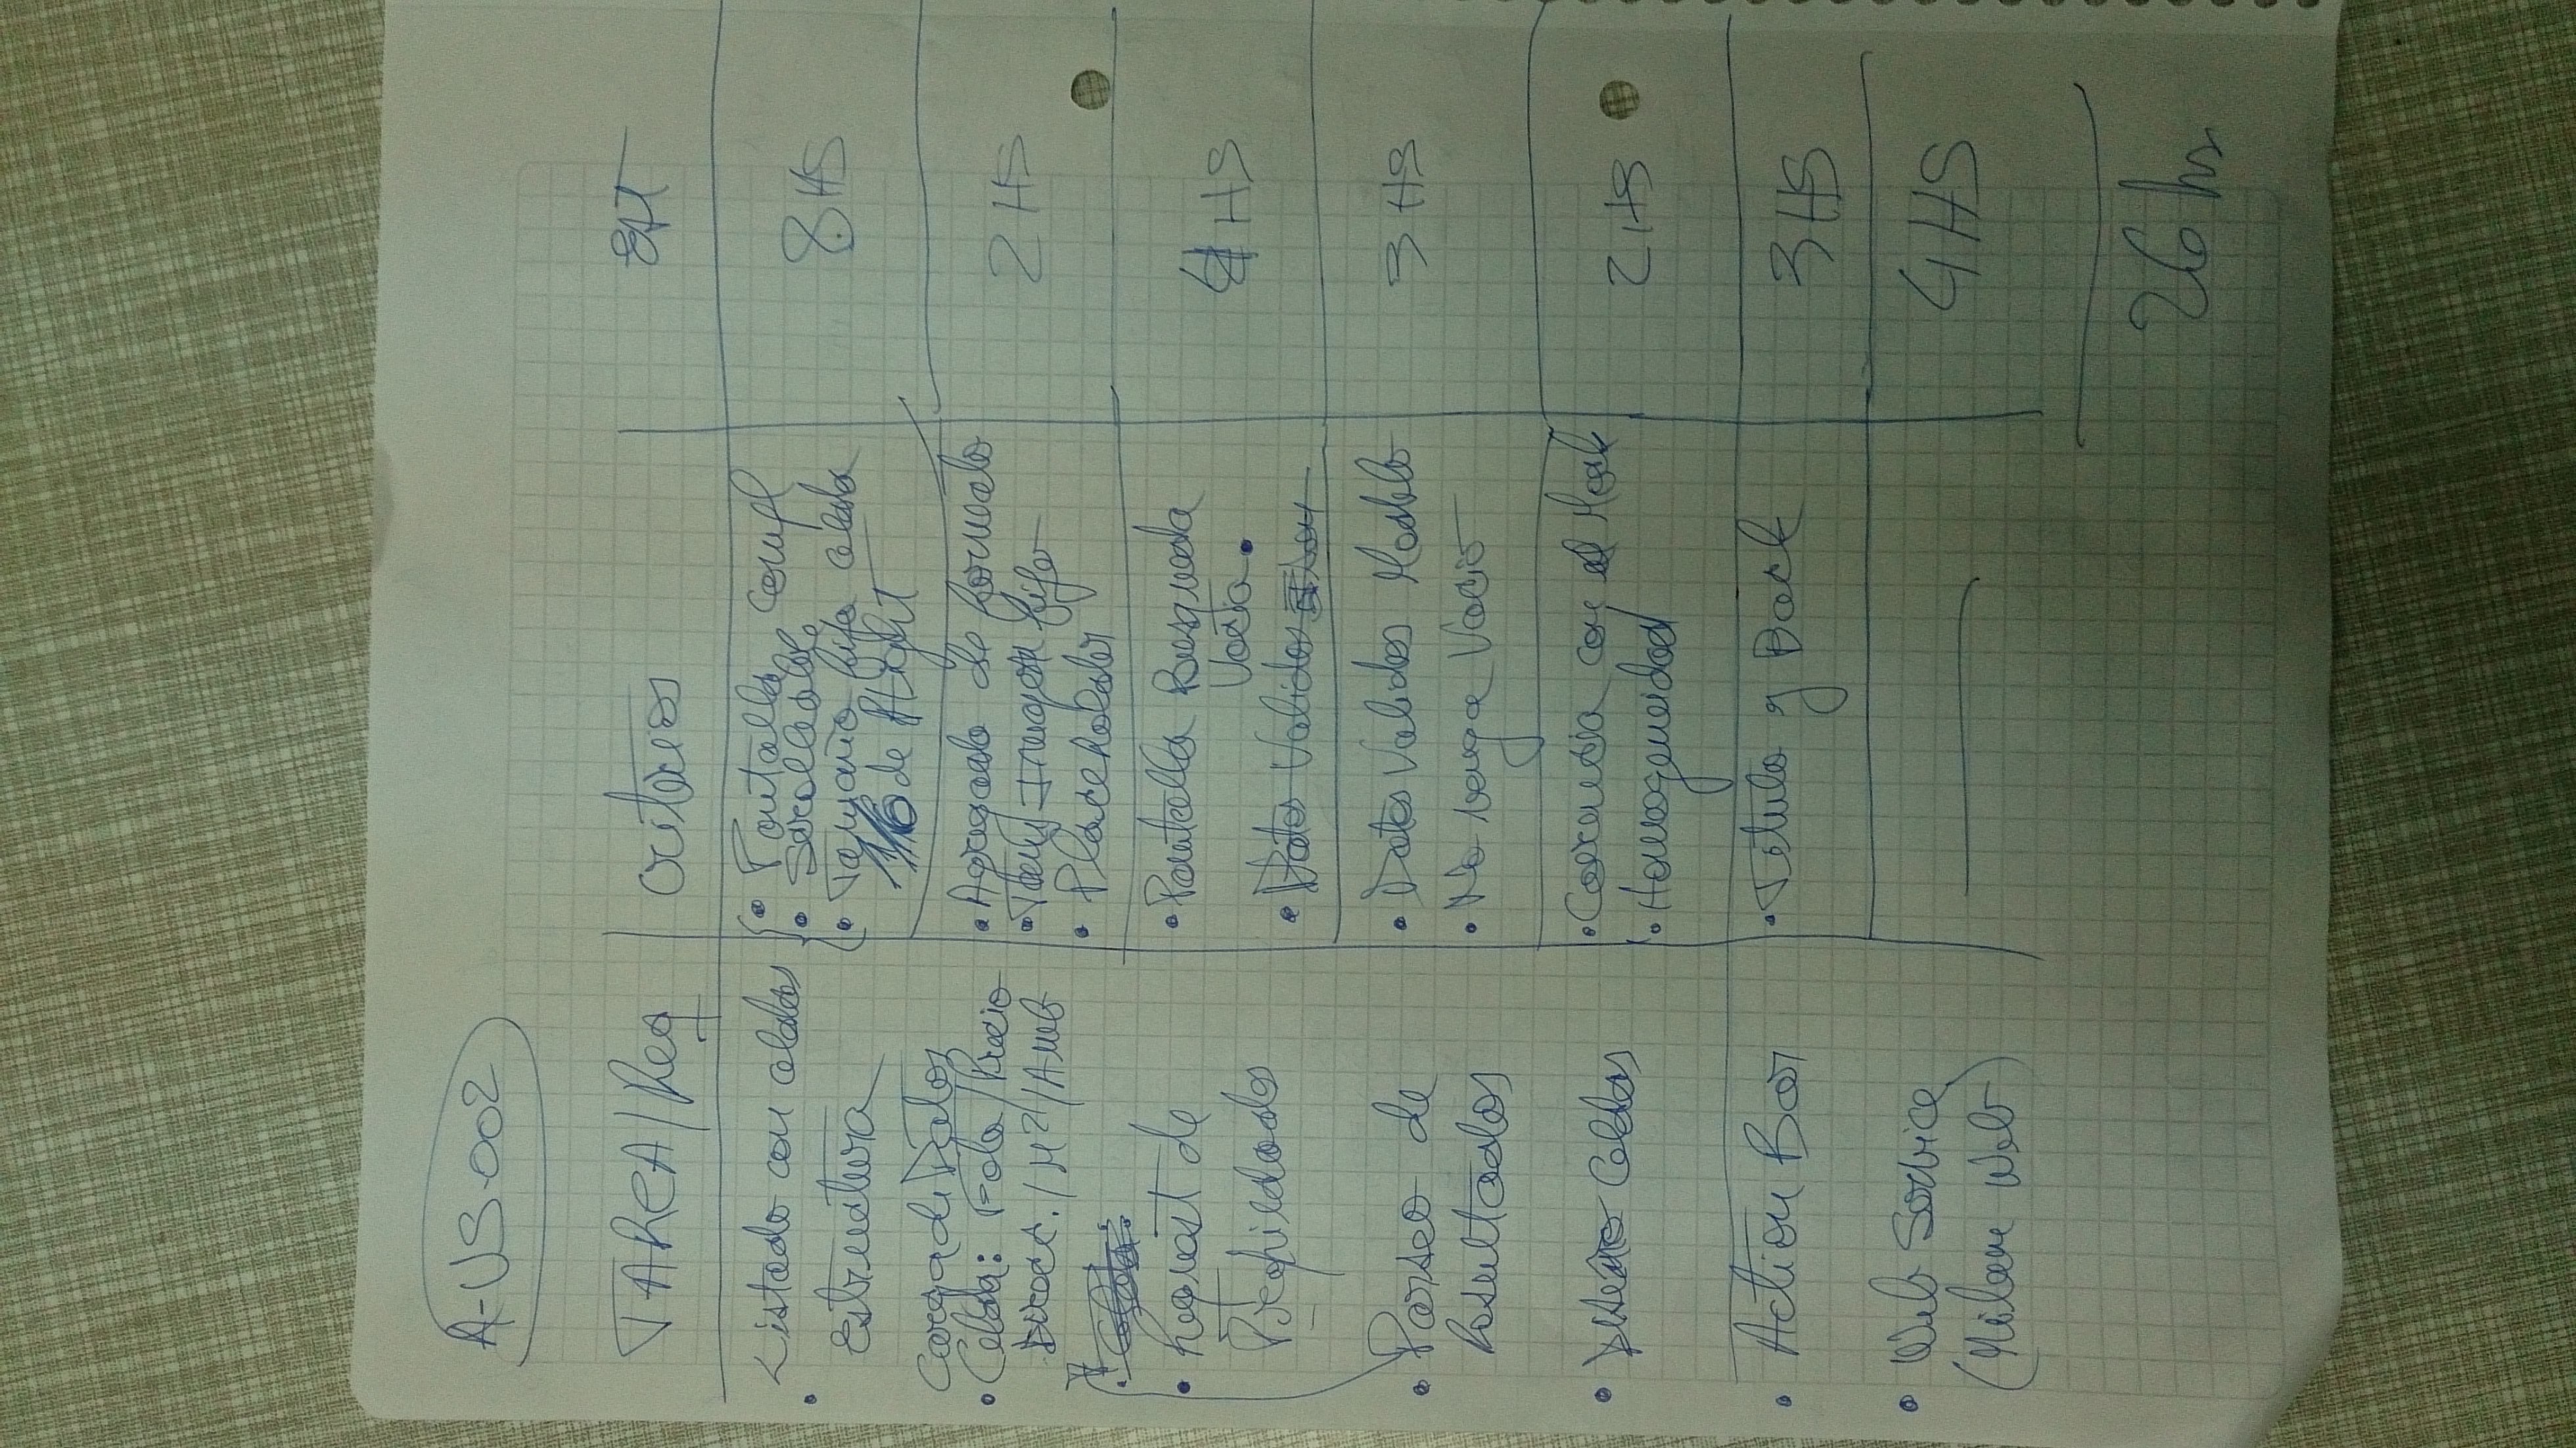 A-US-002
TAREA/Req
criterios
EST
• Listado con celdas
estructura
• Pantalla compl
• Scrolleable
• Tamaño fijo celda
1/6 de Hight
8 HS
Carga de Datos
• Celda: Foto/Precio
Direcc./M²/Amb
• Agregado de formato
• Imagen fijo
• Placeholder
2 HS
• Request de
Propiedades
• Pantalla Busqueda
Vacia.
• Datos Validos
4 HS
• Parseo de
Resultados
• Datos Validos Modelo
• No venga Vacio
3 HS
• Diseño Celdas
• con el Mock
• Homogeneidad
2 HS
• Action Bar
• Titulo y Back
3 HS
• Web Service
(Web)
4 HS
26 hs